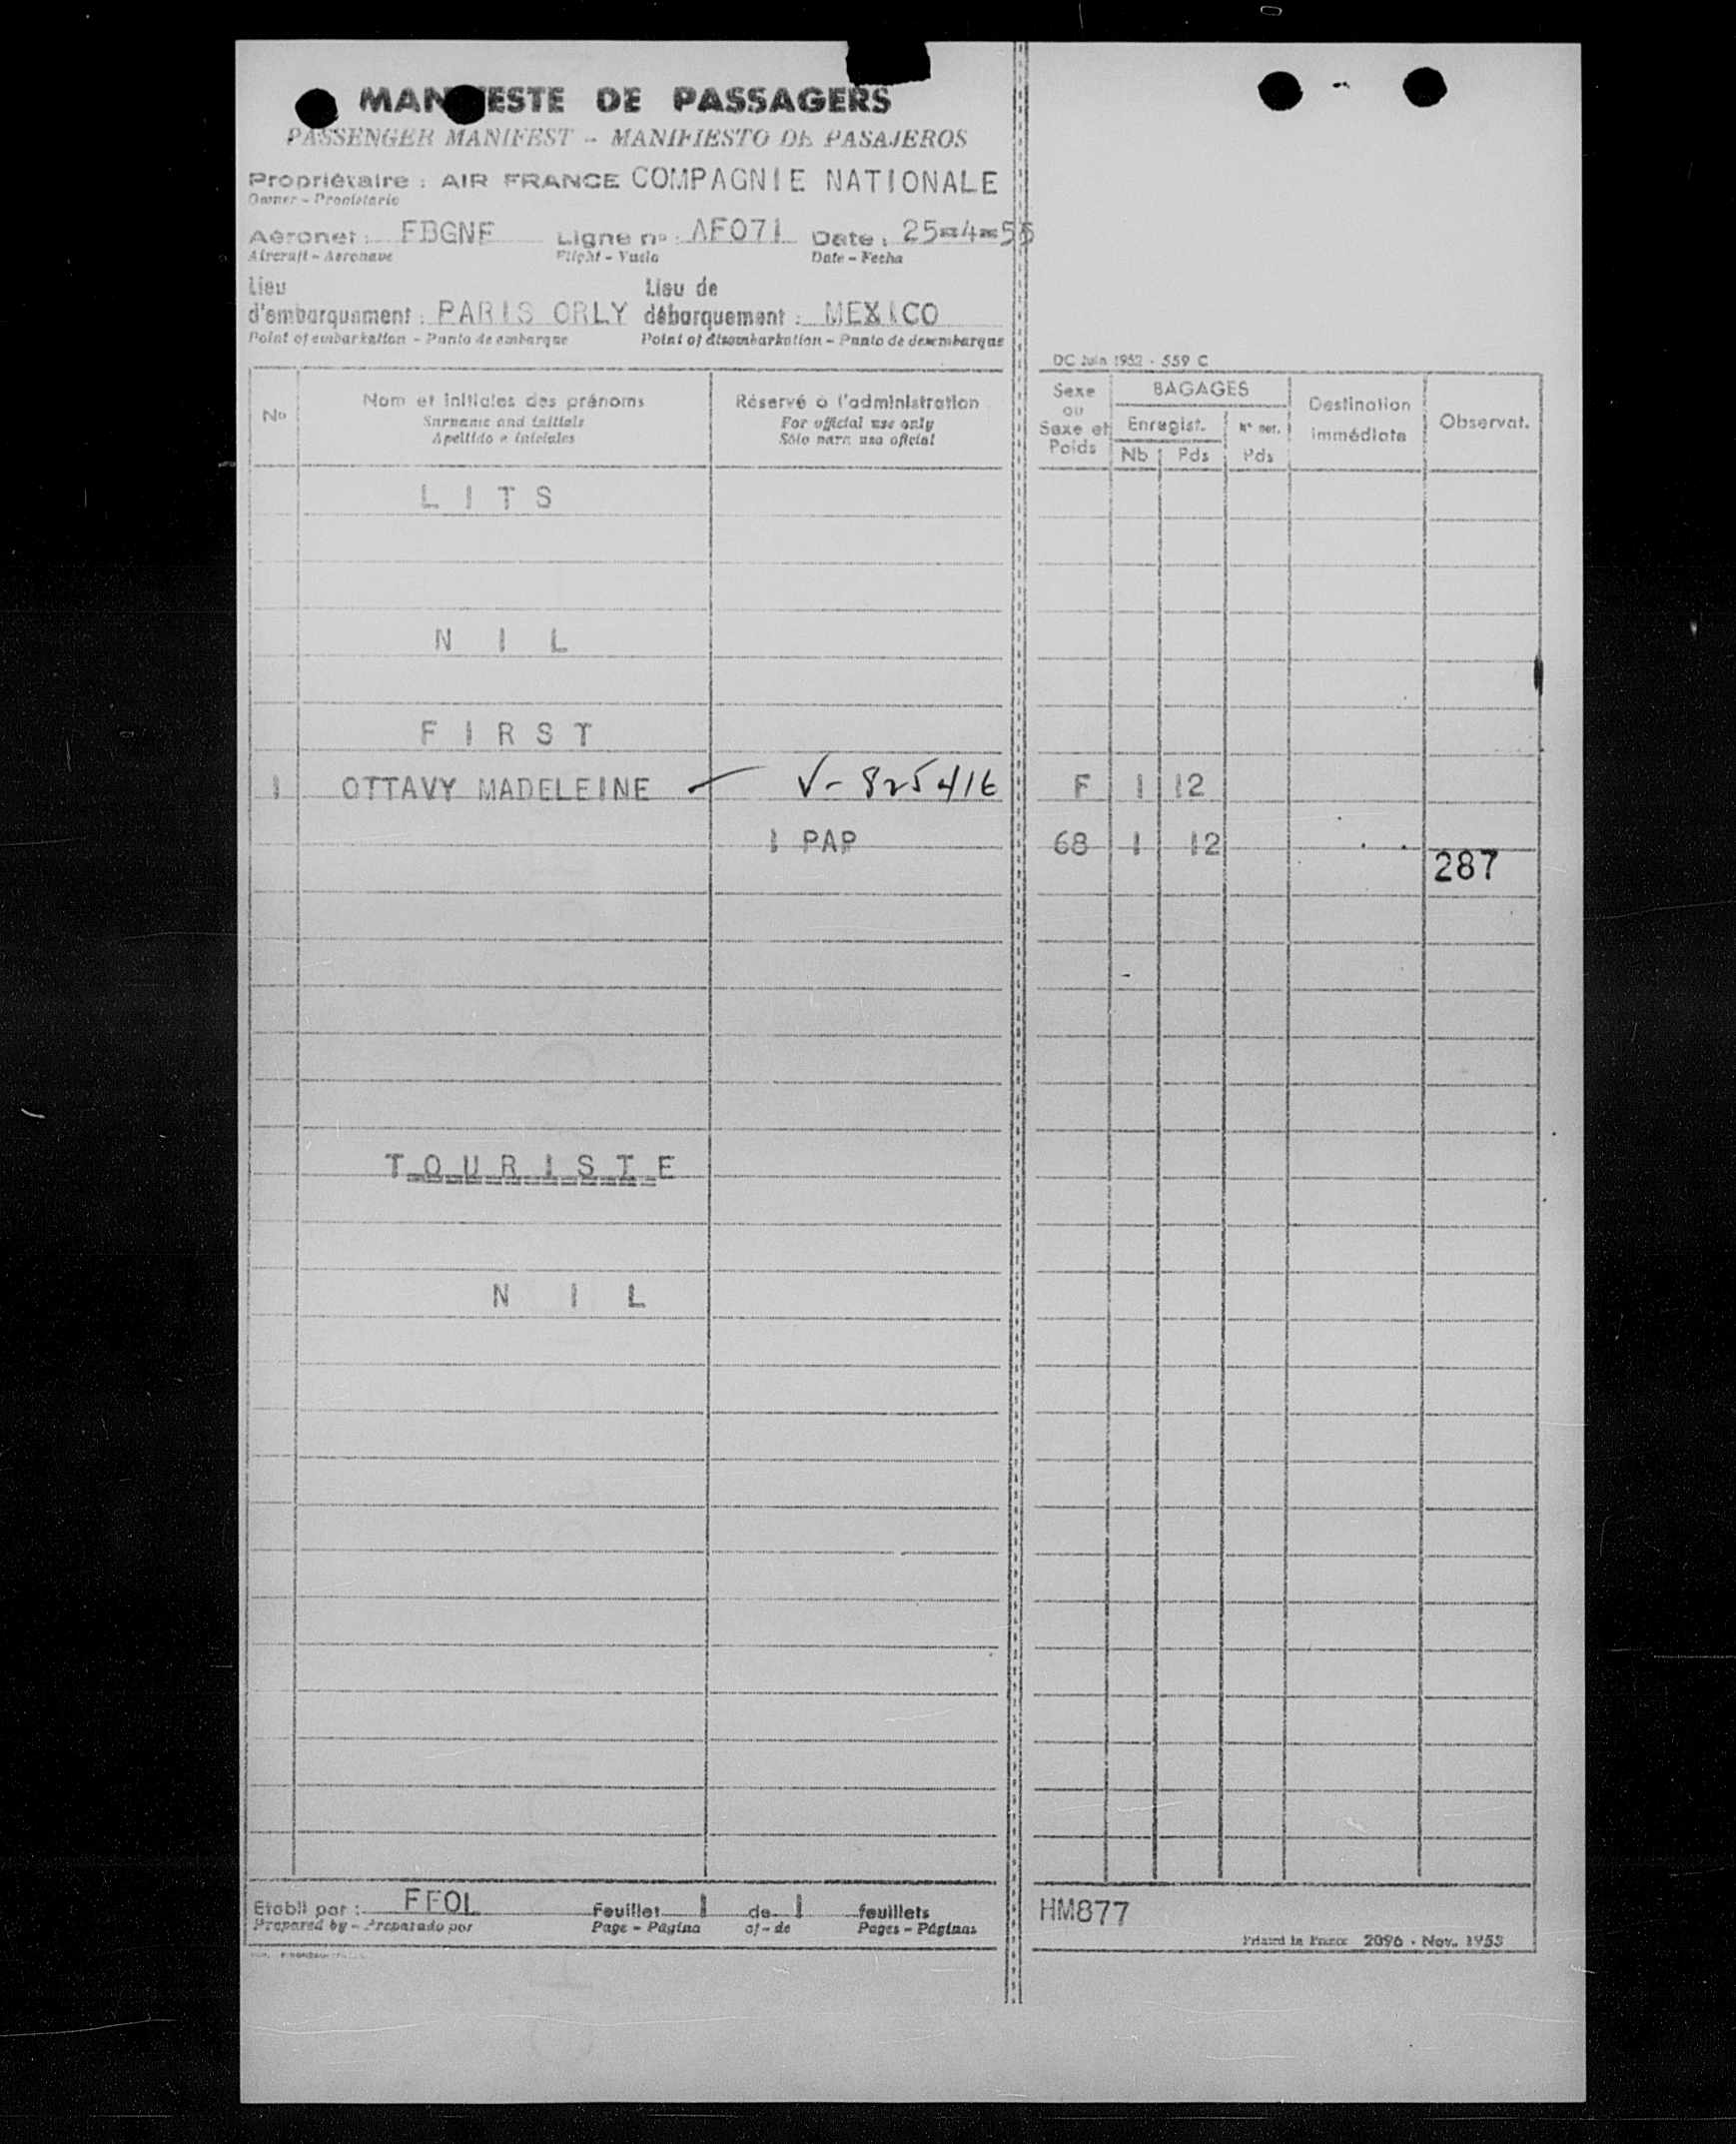 MANIFESTE DE PASSAGERS
PASSENGER MANIFEST - MANIFIESTO DE PASAJEROS
Propriétaire : AIR FRANCE COMPAGNIE NATIONALE
Owner - Propietario
Aéronef : FBGNF Ligne no : AF071 Date : 25-4-55
Aircraft - Aeronave Flight - Vuelo Date - Fecha
Lieu d'embarquement : PARIS ORLY Lieu de débarquement : MEXICO
Point of embarkation - Punto de embarque Point of disembarkation - Punto de desembarque
DC Juin 1952 - 559 C
No Nom et initiales des prénoms Réservé à l'administration Sexe ou Sexe et Poids BAGAGES Destination immédiate Observat.
Surname and initials For official use only Enregist.
Apellido e iniciales Sólo para uso oficial Nb Pds Pds
L I T S
N I L
F I R S T
1 OTTAVY MADELEINE V- 825416 F 1 12
1 PAP 68 1 12
287
T O U R I S T E
N I L
Etabli par : FFOL Feuillet 1 de 1 feuillets HM877
Prepared by - Preparado por Page - Página of - de Pages - Páginas
Printed in France 2096 - Nov. 1953